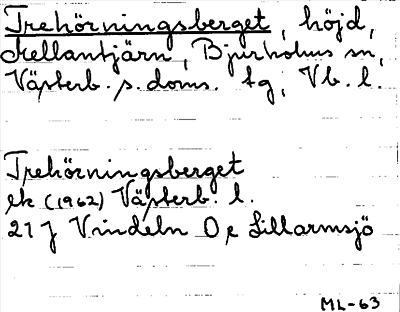 Trehörningsberget, höjd,
Mellantjärn, Bjurholms sn,
Västerb. s. doms. tg, Vb. l.
Trehörningsberget
ek (1962) Västerb. l.
21 J Vindeln 0 e Lillarmsjö
ML-63